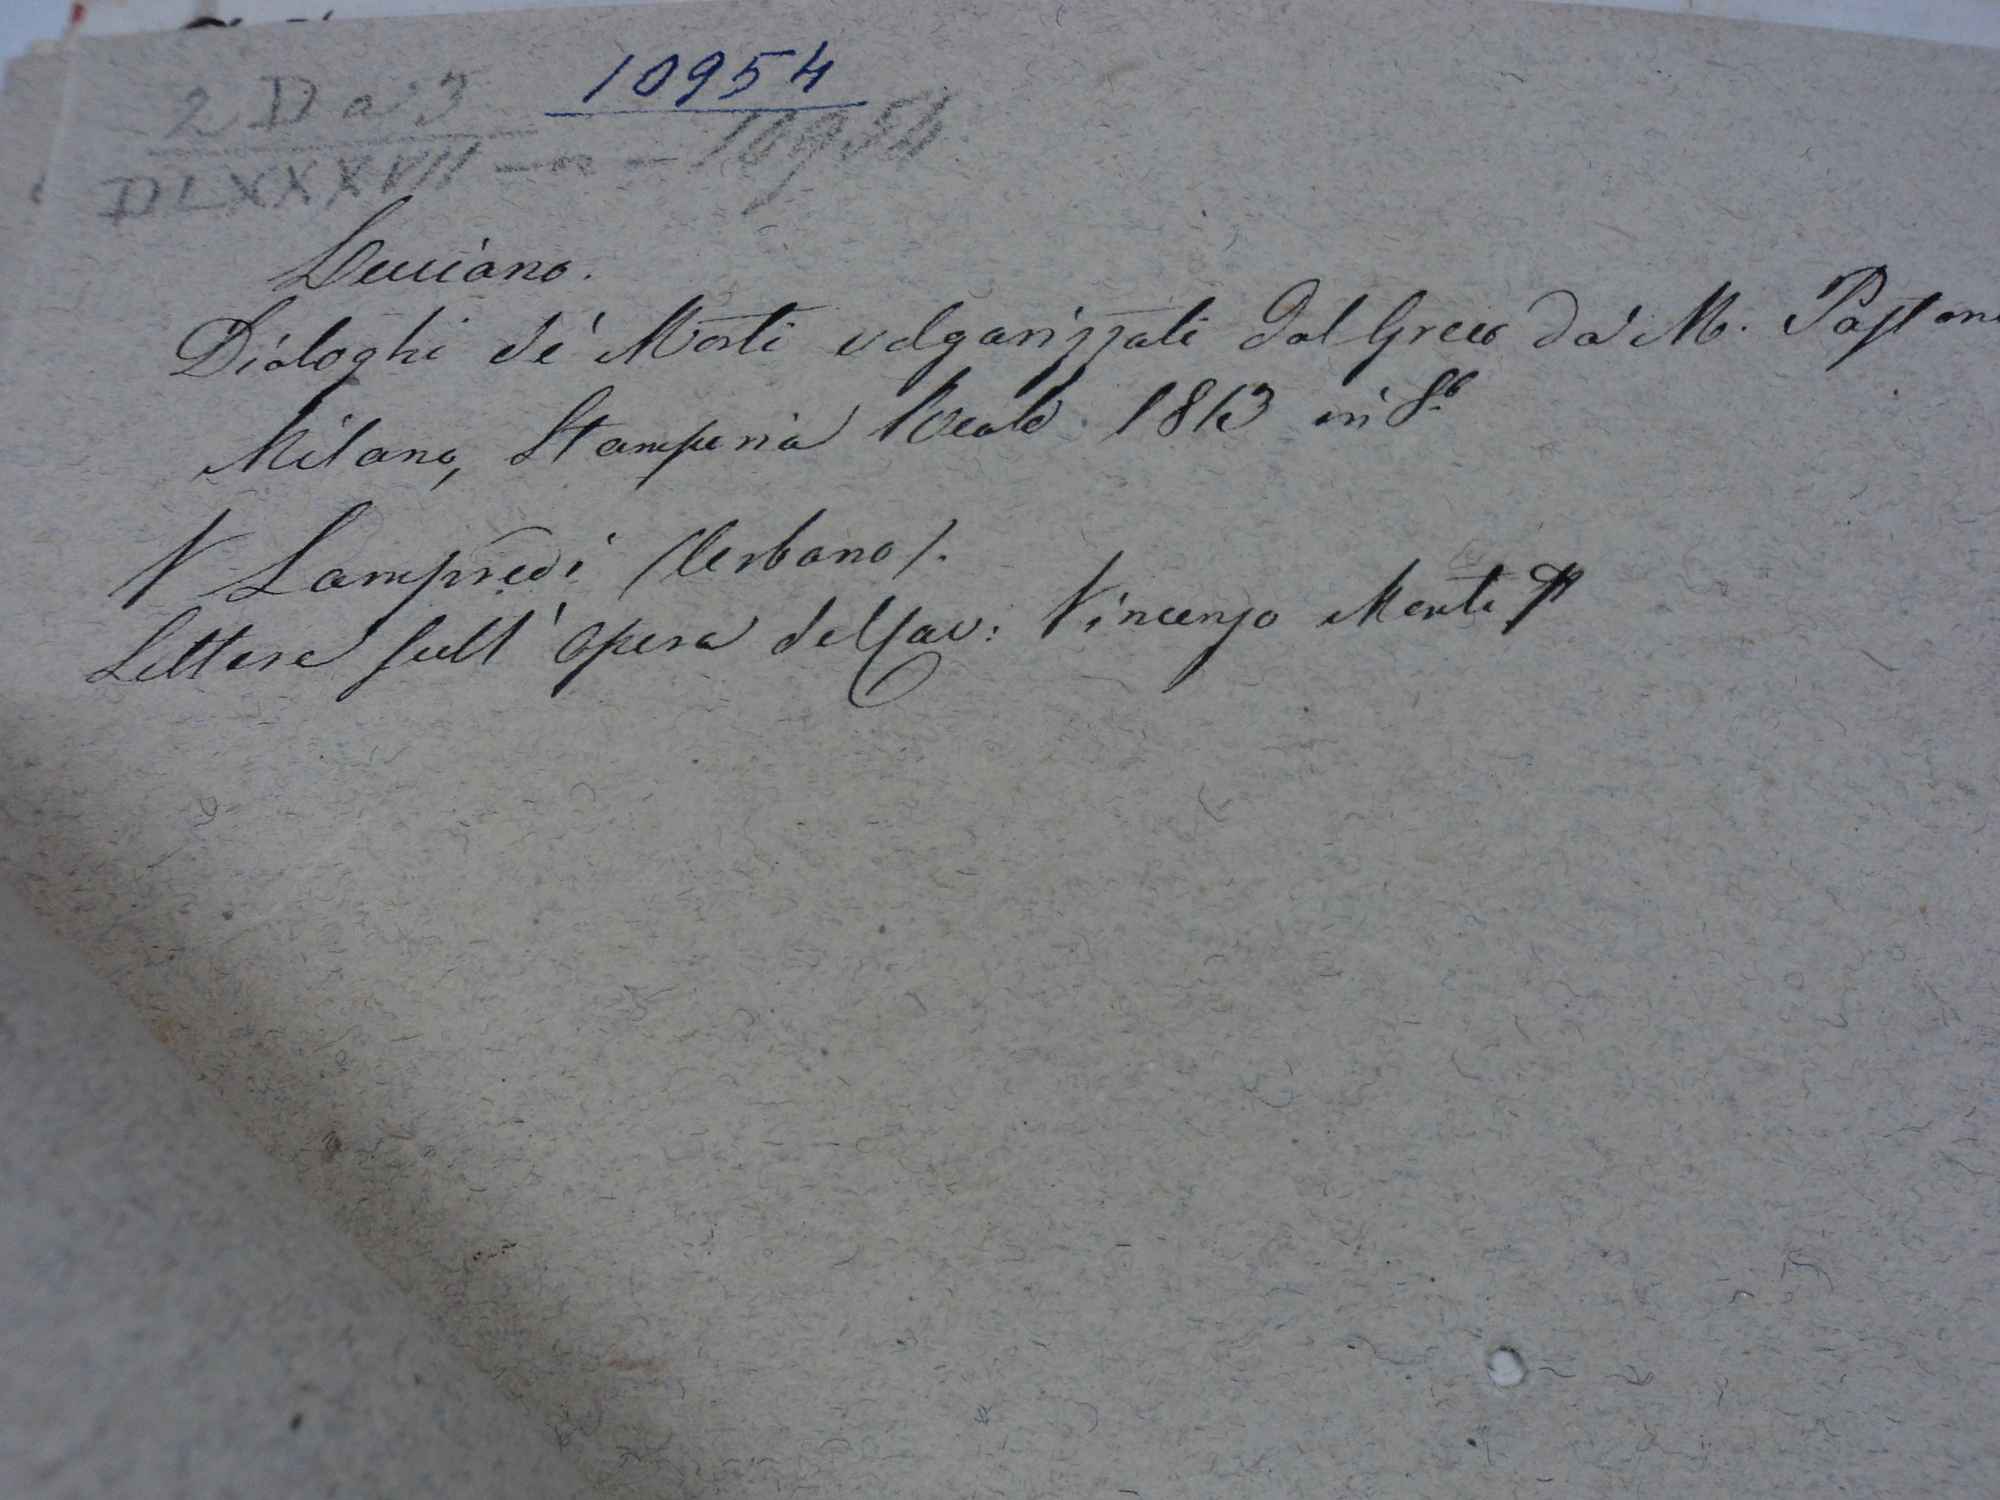 10954
2 D a 3
DLXXXVII — n — 10954
Luciano.
Dialoghi de' Morti volgarizzati dal Greco da M.
Milano, Stamperia Reale 1813 in 8.o
V Lampredi (Urbano).
Lettere sull' opera del Cav: Vincenzo Monti